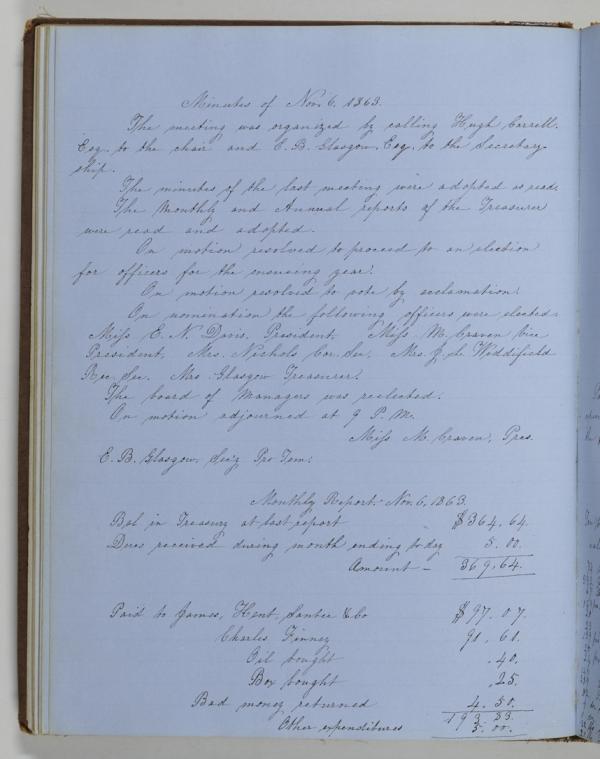 Minutes of Nov. 6, 1863.
The meeting was organized by calling Hugh Carroll.
Esq. to the chair and E. B. Glasgow. Esq. to the Secretary-
ship.
The minutes of the last meeting were adopted as read.
The Monthly and Annual reports of the Treasurer
were read and adopted.
On motion resolved to proceed to an election
for officers for the ensueing year.
On motion resolved to vote by acclamation.
On nomination the following officers were elected.
Miss E. N. Davis, President. Miss. M. Craven Vice
President, Mrs. Nichols Cor. Sec. Mrs. Weddifield
Rec. Sec. Mrs. Glasgow Treasurer.
The board of Managers was reelected.
On motion adjourned at 9 P. M.
Miss M. Craven, Pres.
E. B. Glasgow, Sec'y Pro Tem:
Monthly Report. Nov. 6, 1863.
Bal in Treasury at last report $364.64.
Dues received during month ending to day 5.00.
Amount – 369.64.
Paid to James, Kent, Santee & Co $97.07.
Charles Finney 91.61.
Oil bought .40.
Box bought .25.
Bad money returned 4.50.
193.83.
Other expenditures 5.00.